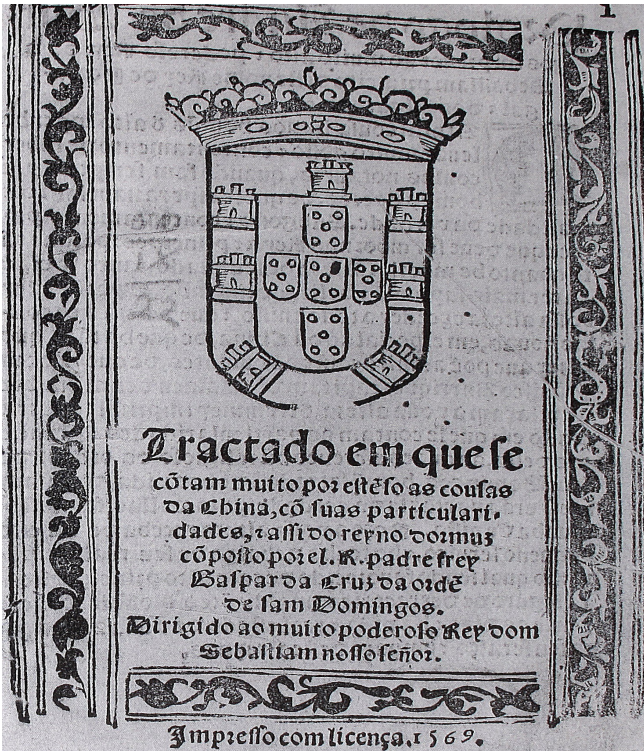 1
Tractado em que se
cõtam muito por estẽso as cousas
da China, cõ suas particulari-
dades, ⁊ assi do reyno dormuz
cõposto por el. R. padre frey
Gaspar da Cruz da ordẽ
de sam Domingos.
Dirigido ao muito poderoso Rey dom
Sebastiam nosso señor.
Impresso com licença. 1569.